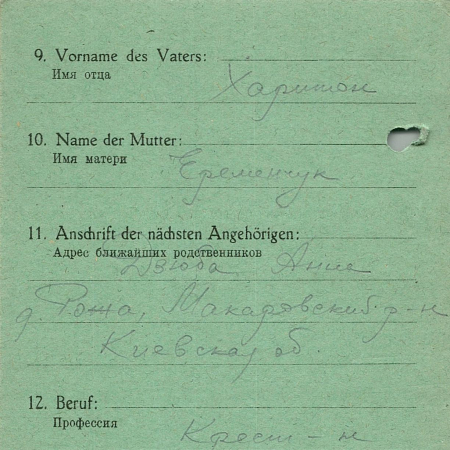 9. Vorname des Vaters:
Имя отца
Харитон
10. Name der Mutter:
Имя матери
Еременчук
11. Anschrift der nächsten Angehörigen:
Адрес ближайших родственников
Дзюба Анне
д Рожа, Макаровский р-н
Киевская об.
12. Beruf:
Профессия
Крест-н